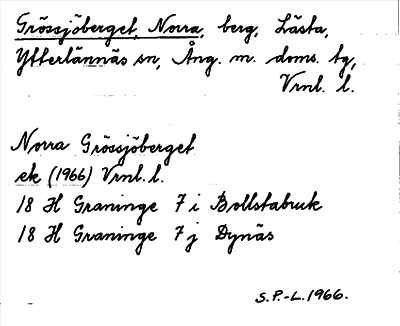 Grössjöberget, Norra, berg, Lästa,
Ytterlännäs sn, Ång. m. doms. tg,
Vrnl. l.
Norra Grössjöberget
ek (1966) Vrnl. l.
18 H Graninge 7 i Bollstabruk
18 H Graninge 7 j Dynäs
S.P.-L. 1966.